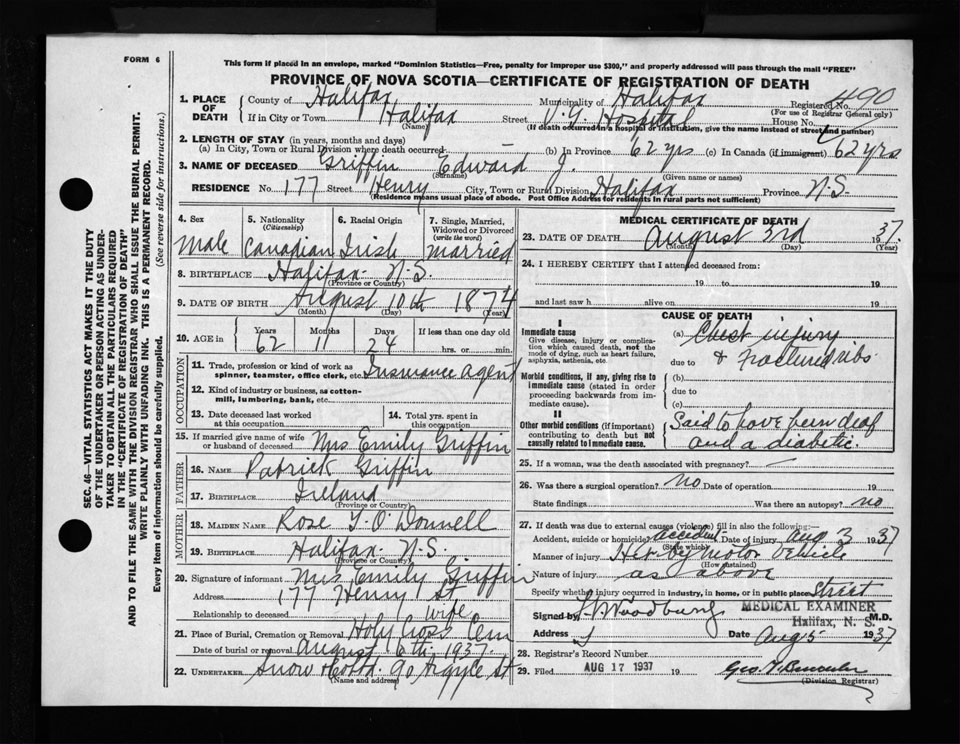 FORM 6
This form if placed in an envelope, marked "Dominion Statistics—Free, penalty for improper use $300," and properly addressed will pass through the mail "FREE"
PROVINCE OF NOVA SCOTIA—CERTIFICATE OF REGISTRATION OF DEATH
SEC. 46—VITAL STATISTICS ACT MAKES IT THE DUTY
OF THE UNDERTAKER OR PERSON ACTING AS UNDER-
TAKER TO OBTAIN ALL THE PARTICULARS REQUIRED
IN THE "CERTIFICATE OF REGISTRATION OF DEATH"
AND TO FILE THE SAME WITH THE DIVISION REGISTRAR WHO SHALL ISSUE THE BURIAL PERMIT.
WRITE PLAINLY WITH UNFADING INK. THIS IS A PERMANENT RECORD.
Every item of information should be carefully supplied. (See reverse side for instructions.)
1. PLACE OF DEATH County of Halifax Municipality of Halifax Registered No. 490
(For use of Registrar General only)
If in City or Town Halifax Street V.G. Hospital House No.
(Name) (If death occurred in a hospital or institution, give the name instead of street and number)
2. LENGTH OF STAY (in years, months and days)
(a) In City, Town or Rural Division where death occurred (b) In Province 62 yrs (c) In Canada (if immigrant) 62 yrs
3. NAME OF DECEASED Griffin Edward J.
(Surname) (Given name or names)
RESIDENCE No. 177 Street Henry City, Town or Rural Division Halifax Province N.S.
(Residence means usual place of abode. Post Office Address for residents in rural parts not sufficient)
4. Sex Male
5. Nationality (Citizenship) Canadian
6. Racial Origin Irish
7. Single, Married, Widowed or Divorced (write the word) Married
8. BIRTHPLACE Halifax N.S.
(Province or Country)
9. DATE OF BIRTH August 10th 1874
(Month) (Day) (Year)
10. AGE in Years 62 Months 11 Days 24 If less than one day old
hrs. or min.
OCCUPATION
11. Trade, profession or kind of work as spinner, teamster, office clerk, etc. Insurance Agent
12. Kind of industry or business, as cotton-mill, lumbering, bank, etc.
13. Date deceased last worked at this occupation
14. Total yrs. spent in this occupation
15. If married give name of wife or husband of deceased Mrs Emily Griffin
FATHER
16. NAME Patrick Griffin
17. BIRTHPLACE Ireland
(Province or Country)
MOTHER
18. MAIDEN NAME Rose O'Donnell
19. BIRTHPLACE Halifax N.S.
(Province or Country)
20. Signature of informant Mrs Emily Griffin
Address 177 Henry St
Relationship to deceased wife
21. Place of Burial, Cremation or Removal Holy Cross Cem
Date of burial or removal August 6th 1937
22. UNDERTAKER Snow & Co Ltd. 90 Argyle St
(Name and address)
MEDICAL CERTIFICATE OF DEATH
23. DATE OF DEATH August 3rd 1937
(Month) (Day) (Year)
24. I HEREBY CERTIFY that I attended deceased from:
19 to 19
and last saw h alive on 19
CAUSE OF DEATH
I
Immediate cause
Give disease, injury or complication which caused death, not the mode of dying, such as heart failure, asphyxia, asthenia, etc.
(a) Chest injury
due to & Fractured ribs
Morbid conditions, if any, giving rise to immediate cause (stated in order proceeding backwards from immediate cause).
(b)
due to
(c)
II
Other morbid conditions (if important) contributing to death but not causally related to immediate cause.
Said to have been deaf
and a diabetic
25. If a woman, was the death associated with pregnancy? —
26. Was there a surgical operation? no Date of operation 19
State findings Was there an autopsy? no
27. If death was due to external causes (violence) fill in also the following:—
Accident, suicide or homicide? accident Date of injury Aug 3 1937
(State which)
Manner of injury Hit by motor vehicle
(How sustained)
Nature of injury as above
Specify whether injury occurred in industry, in home, or in public place street
Signed by Woodbury M.D.
MEDICAL EXAMINER
Halifax, N. S.
Address Date Aug 5 1937
28. Registrar's Record Number
29. Filed AUG 17 1937 19
(Division Registrar)